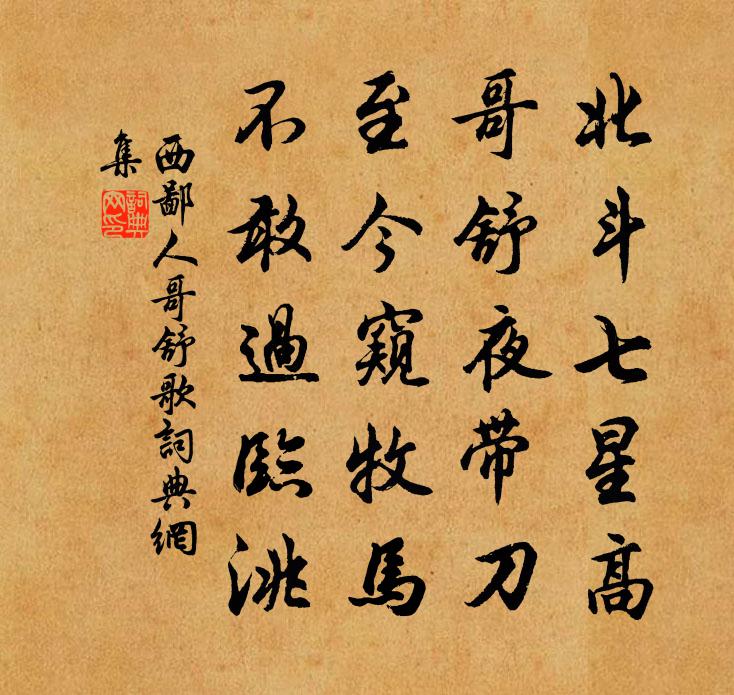 北斗七星高
哥舒夜带刀
至今窺牧馬
不敢過臨洮
西鄙人哥舒歌詞典網
集
詞典
网印